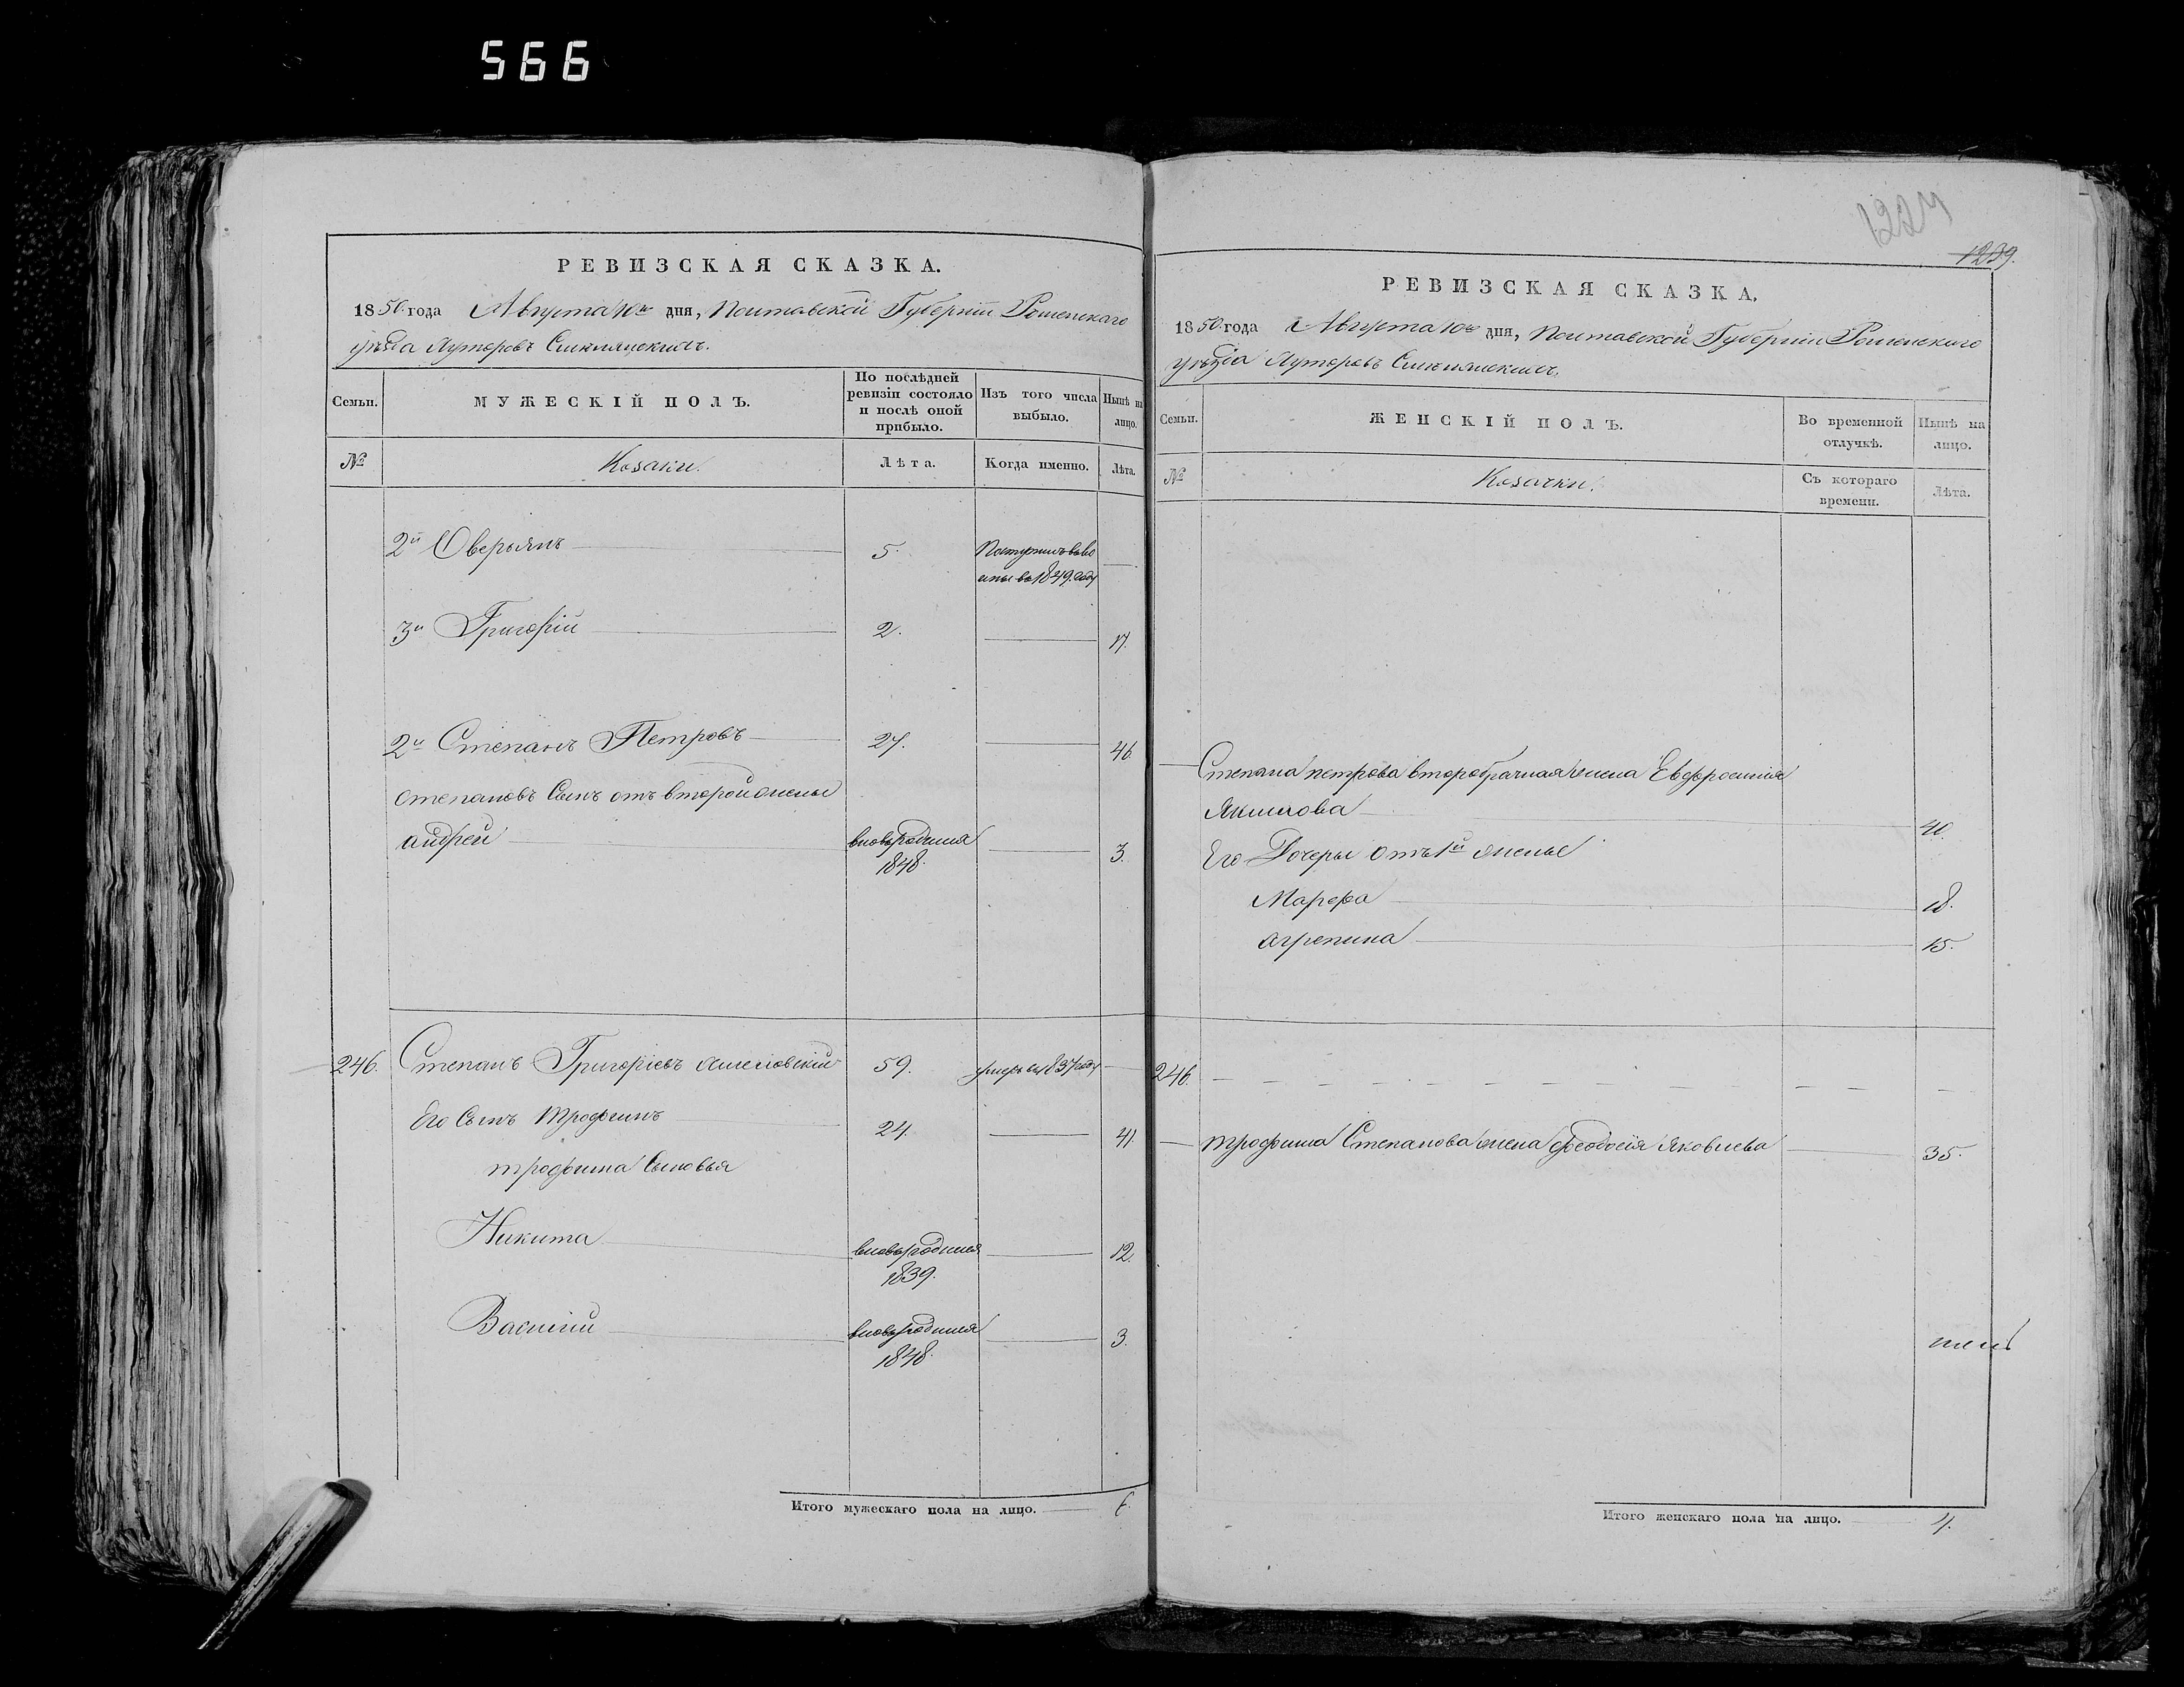 566
РЕВИЗСКАЯ СКАЗКА.
1850 года Августа 10го дня, Полтавской Губерніи Роменскаго
уѣзда Хуторовъ
Семьи.
МУЖЕСКІЙ ПОЛЪ.
По послѣдней ревизіи состояло и послѣ оной прибыло.
Изъ того числа выбыло.
Нынѣ на лицо.
№
Козаки.
Лѣта.
Когда именно.
Лѣта.
2й Оверьянъ 5. въ 1849. году
3й Григорій 2. 17.
2й Степанъ Петровъ 27. 46.
Степановъ Сынъ отъ второй жены
андрей вновьродился 1848. 3.
246. Степанъ Григоріевъ 59. умеръ въ 1837 году
Его Сынъ Трофимъ 24. 41.
Трофима Сыновья
Никита вновьродился 1839. 12.
Василій вновьродился 1848. 3.
Итого мужескаго пола на лицо. 6.
1239.
РЕВИЗСКАЯ СКАЗКА.
1850 года Августа 10го дня, Полтавской Губерніи Роменскаго
уѣзда Хуторовъ
Семьи.
ЖЕНСКІЙ ПОЛЪ.
Во временной отлучкѣ.
Нынѣ на лицо.
№
Козачки.
Съ котораго времени.
Лѣта.
Степана петрова второбрачная жена Евдфросинія
Якимова 40.
Его Дочеры отъ 1й жены
Марфа 18.
агрепина 15.
246.
Трофима Степанова жена феодосія Яковлева 35.
Итого женскаго пола на лицо. 4.